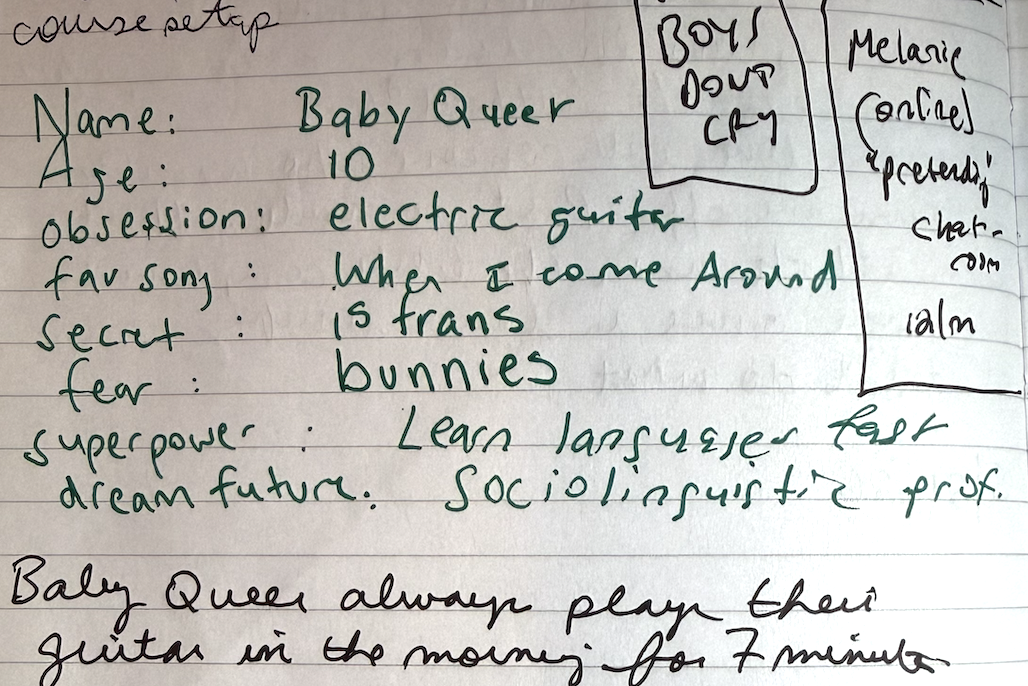 course setup
BOYS
DONT
CRY
Melanie
(online)
"pretending"
chat-
room
Name: Baby Queer
Age: 10
obsession: electric guitar
fav song : When I come Around
secret : is trans
fear : bunnies
superpower : Learn languages fast
dream future. Sociolinguistic prof.
Baby Queer always plays their
guitar in the morning for 7 minutes